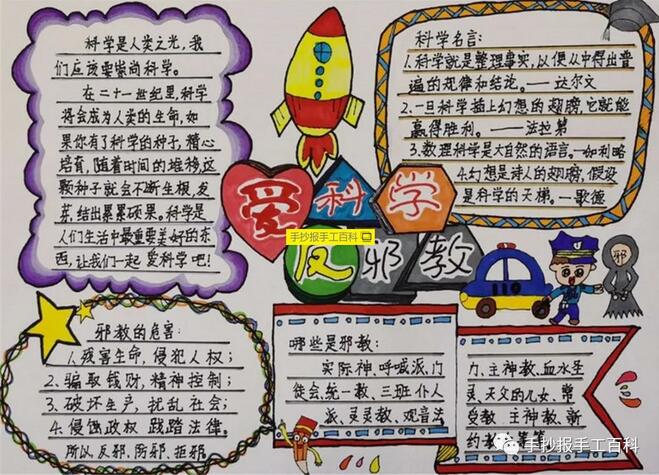 科学是人类之光，我
们应该要崇尚科学。
在二十一世纪里，科学
将会成为人类的生命，如
果你有了科学的种子，精心
培育，随着时间的推移，这
颗种子就会不断生根、发
芽，结出累累硕果。科学是
人们生活中最重要美好的东
西，让我们一起爱科学吧！
科学名言：
1.科学就是整理事实，以便从中得出普
遍的规律和结论。——达尔文
2.一旦科学插上幻想的翅膀，它就能
赢得胜利。——法拉第
3.数理科学是大自然的语言。—伽利略
4.幻想是诗人的翅膀，假设
是科学的天梯。—歌德
爱科学
反邪教
手抄报手工百科
邪
邪教的危害：
1.残害生命，侵犯人权；
2.骗取钱财，精神控制；
3.破坏生产，扰乱社会；
4.侵蚀政权，践踏法律。
所以反邪、防邪、拒邪
哪些是邪教：
实际神、呼喊派、门
徒会、统一教、三班仆人
派、灵灵教、观音法
力、主神教、血水圣
灵、天父的儿女、常
受教、主神教、新
约教
手抄报手工百科